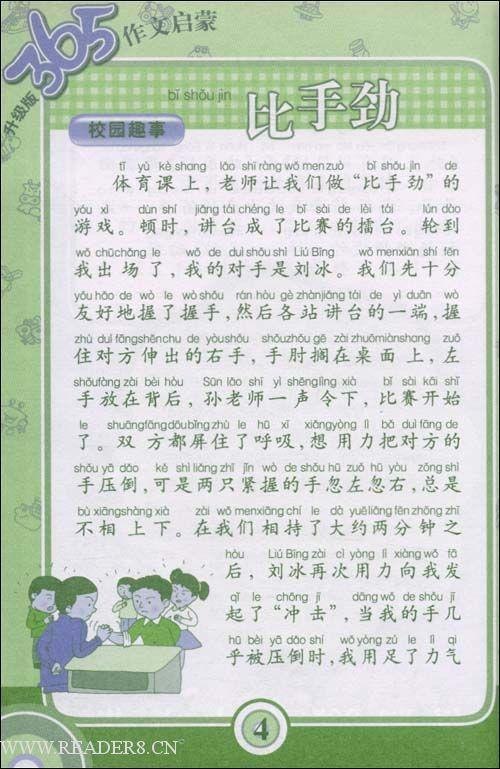 365
作文启蒙
升级版
bǐ shǒu jìn
比手劲
校园趣事
tǐ yù kè shang lǎo shī ràng wǒ men zuò bǐ shǒu jìn de
体育课上，老师让我们做“比手劲”的
yóu xì dùn shí jiǎng tái chéng le bǐ sài de lèi tái lún dào
游戏。顿时，讲台成了比赛的擂台。轮到
wǒ chū chǎng le wǒ de duì shǒu shì Liú Bīng wǒ men xiān shí fēn
我出场了，我的对手是刘冰。我们先十分
yǒu hǎo de wò le wò shǒu rán hòu gè zhàn jiǎng tái de yì duān wò
友好地握了握手，然后各站讲台的一端，握
zhù duì fāng shēn chu de yòu shǒu shǒu zhǒu gē zài zhuō miàn shang zuǒ
住对方伸出的右手，手肘搁在桌面上，左
shǒu fàng zài bèi hòu Sūn lǎo shī yì shēng lìng xià bǐ sài kāi shǐ
手放在背后，孙老师一声令下，比赛开始
le shuāng fāng dōu bǐng zhù le hū xī xiǎng yòng lì bǎ duì fāng de
了。双方都屏住了呼吸，想用力把对方的
shǒu yā dǎo kě shì liǎng zhī jǐn wò de shǒu hū zuǒ hū yòu zǒng shì
手压倒，可是两只紧握的手忽左忽右，总是
bù xiāng shàng xià zài wǒ men xiāng chí le dà yuē liǎng fēn zhōng zhī
不相上下。在我们相持了大约两分钟之
hòu Liú Bīng zài cì yòng lì xiàng wǒ fā
后，刘冰再次用力向我发
qǐ le chōng jī dāng wǒ de shǒu jī
起了“冲击”，当我的手几
hū bèi yā dǎo shí wǒ yòng zú le lì qi
乎被压倒时，我用足了力气
4
WWW.READER8.CN